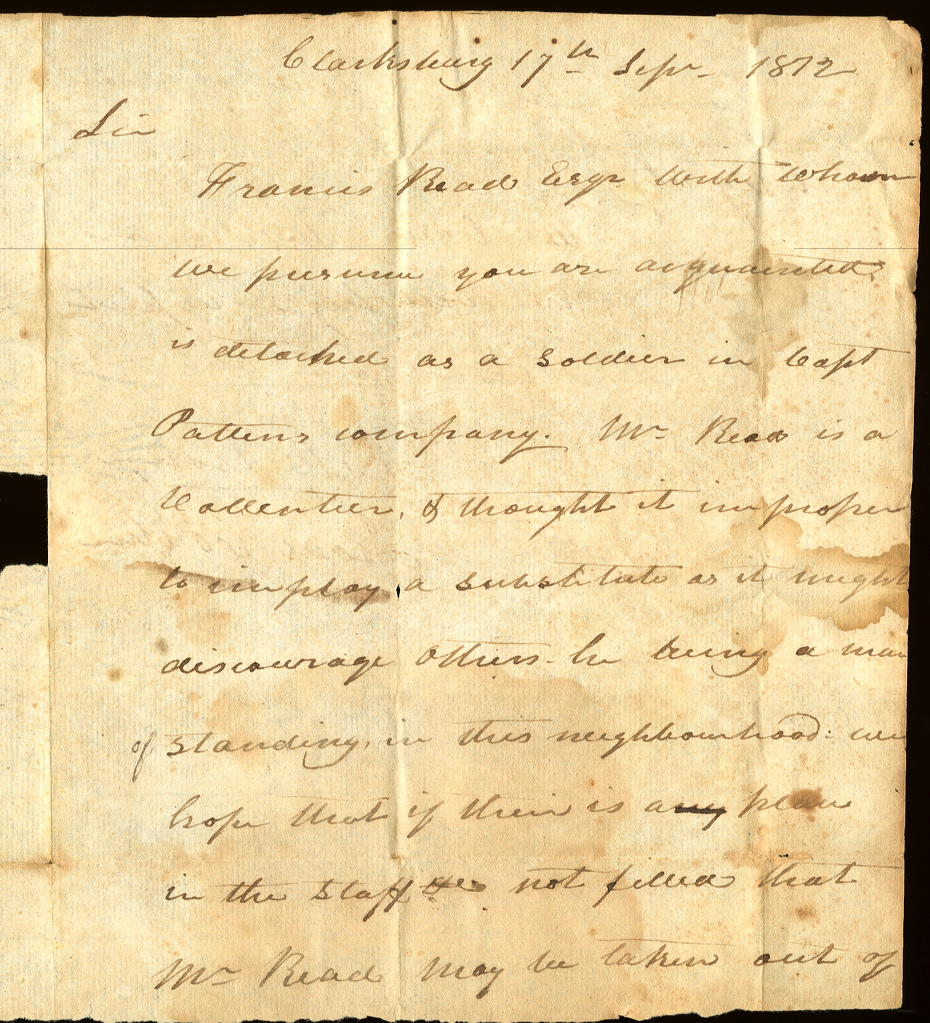 Clarksburg 17th Sepr 1812
Sir
Francis Read Esqr with whom
we presume you are acquainted
is detached as a soldier in Capt
Pattens company. Mr Read is a
Vollentier, & thought it improper
to imploy a substitute as it might
discourage others. he being a man
of standing, in this neighbourhood: we
hope that if their is any place
in the staff &c not filled that
Mr Read may be taken out of